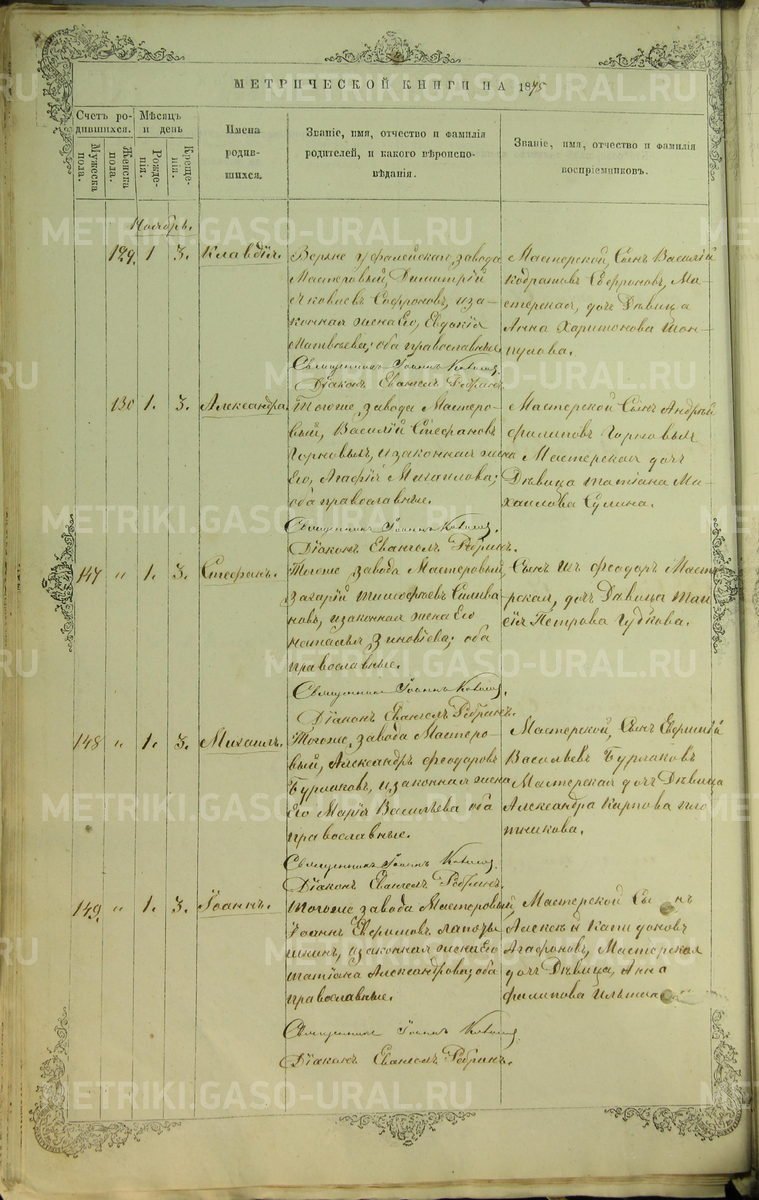 МЕТРИЧЕСКОЙ КНИГИ НА 1875
Счетъ родившихся.
Мужеска пола.
Женска пола.
Мѣсяцъ и день
Рожденія.
Крещенія.
Имена родившихся.
Званіе, имя, отчество и фамилія родителей, и какого вѣроисповѣданія.
Званіе, имя, отчество и фамилія воспріемниковъ.
Ноябрь.
129. 1 3. Клавдія.
Верхне Уфалейскаго, завода
Мастеровый, Димитрій
Софроновъ, и за-
конная жена Его, Евдокія
Матвѣева; оба православные.
Священникъ Іоаннъ
Діаконъ Евангелъ
Мастерской, Сынъ Василій
Софроновъ, Ма-
стерская, дочь Дѣвица
Анна Харитонова
130 1. 3. Александра.
Тогоже, завода Мастеро-
вый, Василій Стефановъ
Горновыхъ, и законная жена
Его, Агафія Михаилова;
оба православные.
Священникъ Іоаннъ
Діаконъ Евангелъ
Мастерской Сынъ Андрей
Филиповъ Горновыхъ
Мастерская дочь
Дѣвица Татіана Ми-
хаилова Сулина.
147 " 1. 3. Стефанъ.
Тогоже, завода Мастеровый,
Захарій Тимофѣевъ Силива-
новъ, и законная жена Его
Наталья Зиновіева; оба
православные.
Священникъ Іоаннъ
Діаконъ Евангелъ
Сынъ ихъ Феодоръ, Масте-
рская, дочь Дѣвица
Петрова Гудкова.
148 " 1. 3. Михаилъ.
Тогоже, завода Мастеро-
вый, Александръ Феодоровъ
Бурлаковъ, и законная жена
Его Марія Васильева оба
православные.
Священникъ Іоаннъ
Діаконъ Евангелъ
Мастерской, Сынъ
Васильевъ Бурлаковъ
Мастерская дочь Дѣвица
Александра Карпова Пло-
тникова.
149 " 1. 3. Іоаннъ.
Тогоже завода Мастеровый,
Іоаннъ Ефимовъ
и законная жена Его
Татіана Александрова; оба
православные.
Священникъ Іоаннъ
Діаконъ Евангелъ
Мастерской Сынъ
Алексѣй
Агафоновъ, Мастерская
дочь Дѣвица, Анна
Филипова
METRIKI.GASO-URAL.RU